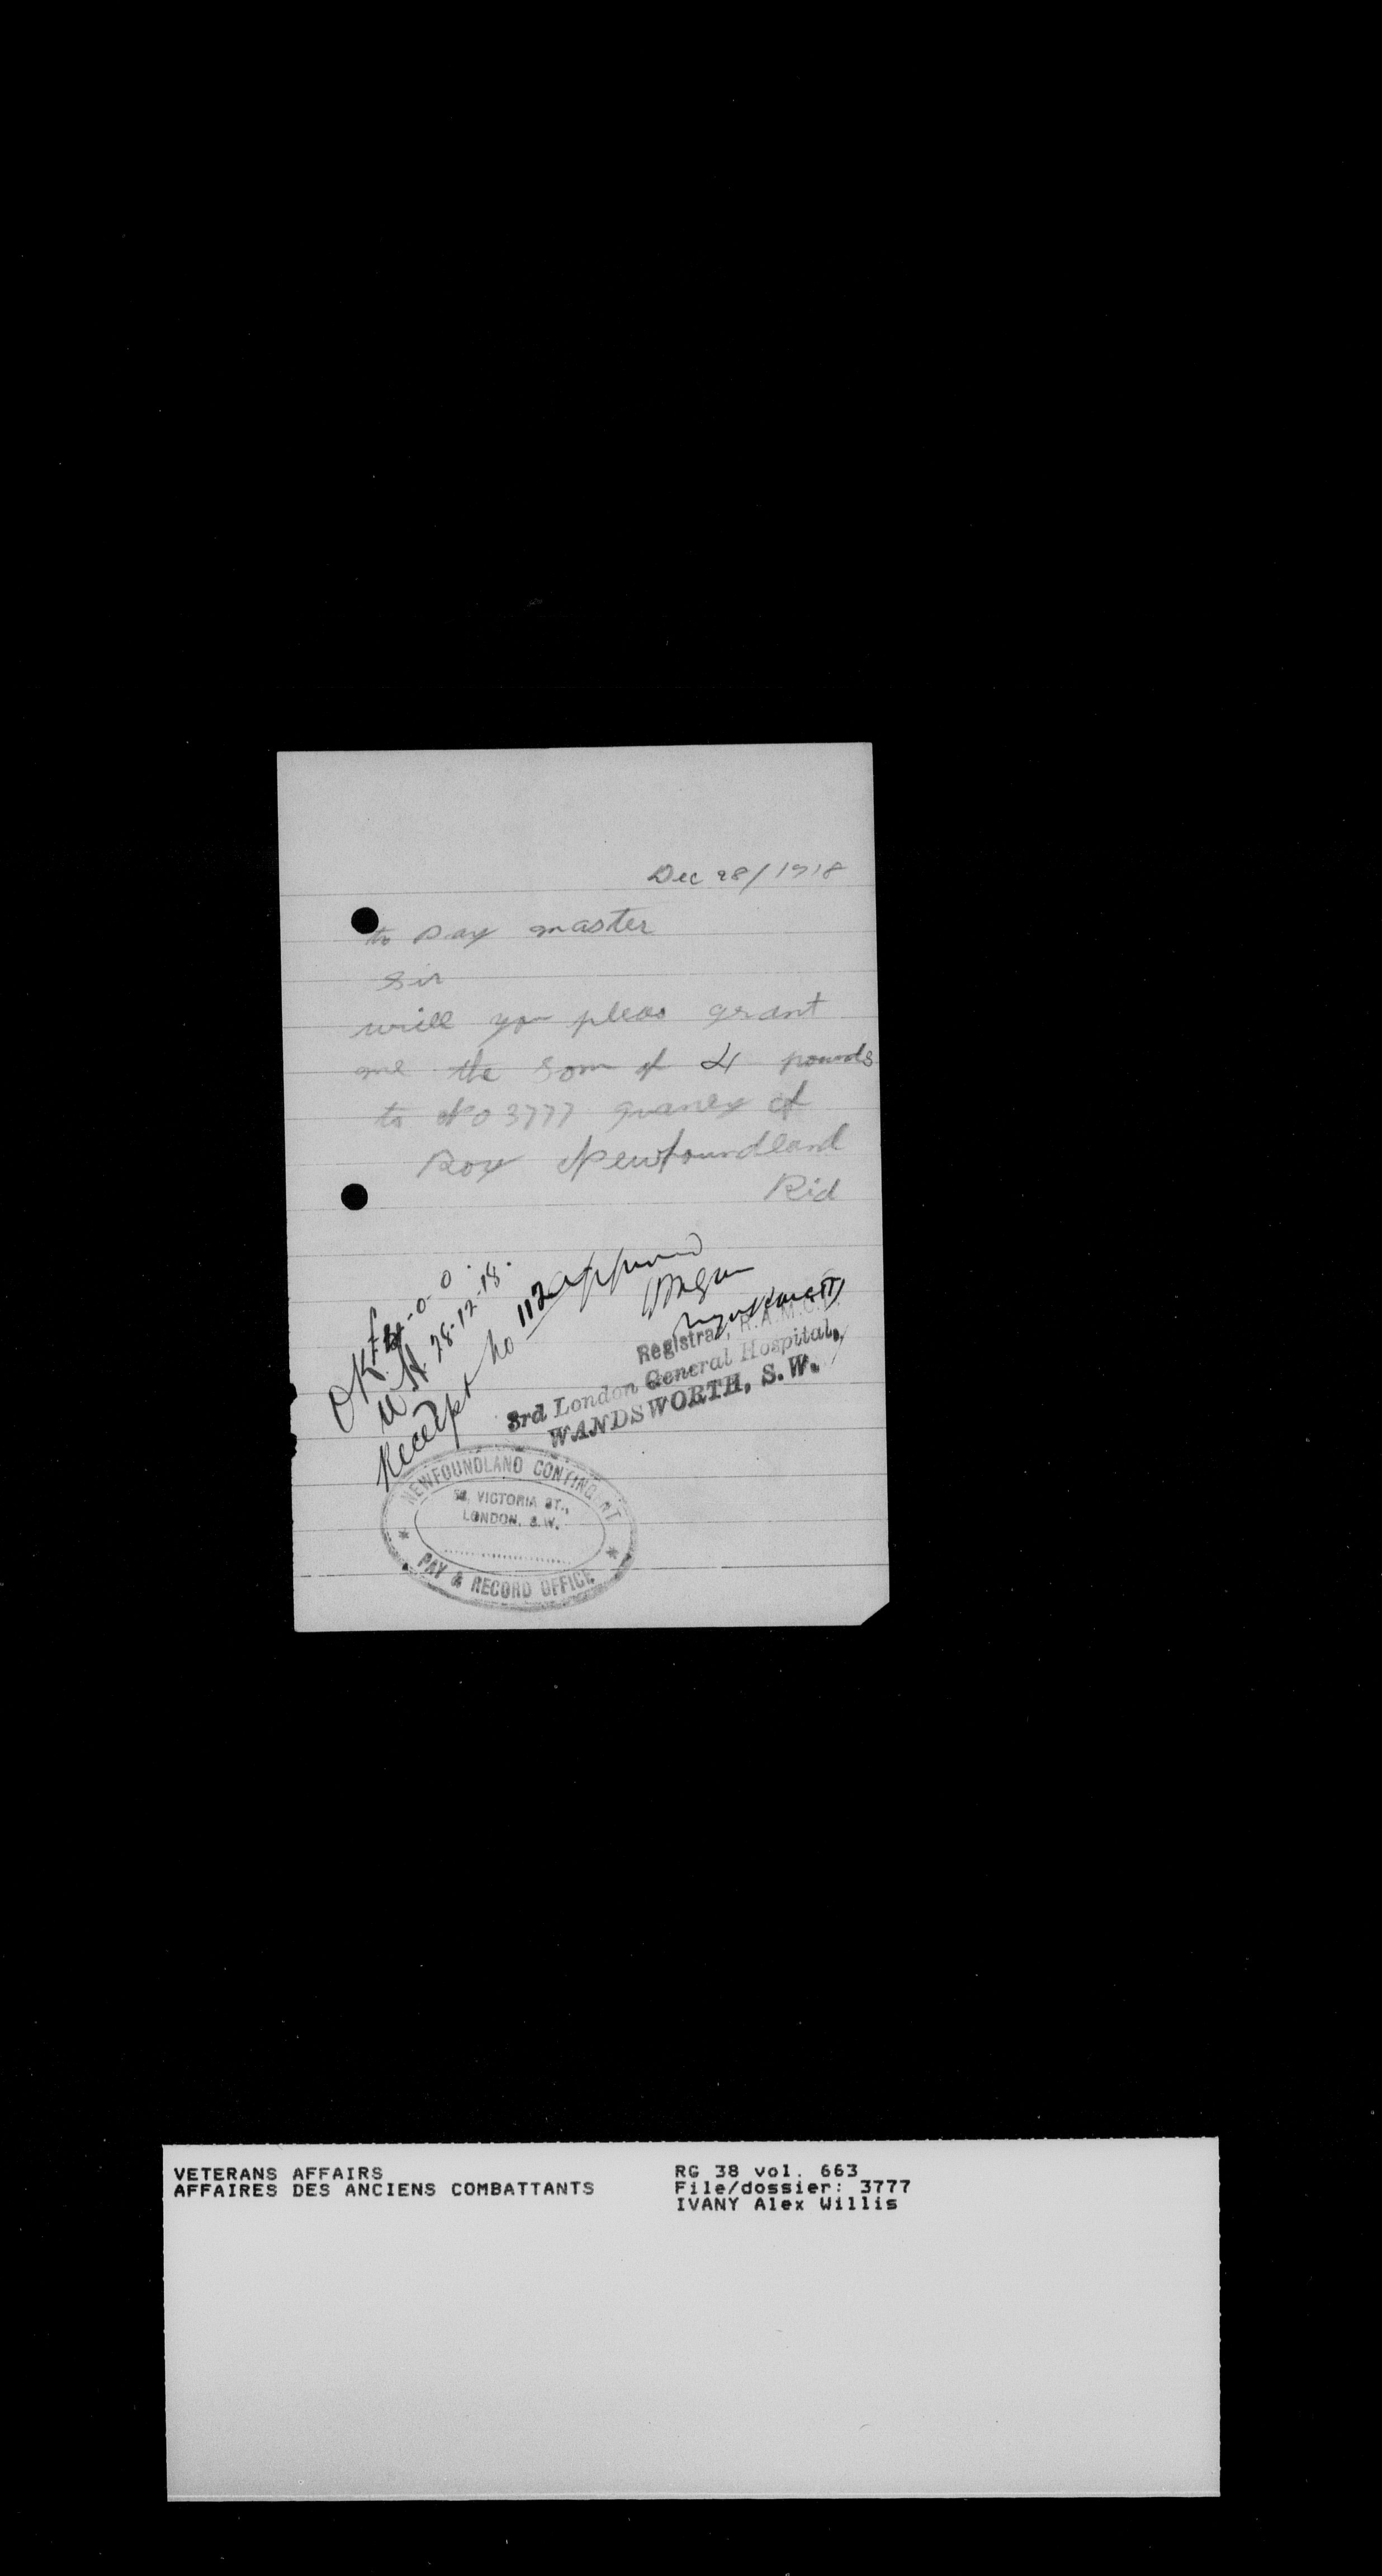 Dec 28/1918
to Pay master
Sir
will you pleas grant
me the som of 4 pounds
to No 3777
Roy Newfoundland
Rid
OK £4-0-0.
W.H. 28-12-18.
Receipt No 112
approved
Registrar, R.A.M.C.T.
3rd London General Hospital,
WANDSWORTH, S.W.
NEWFOUNDLAND CONTINGENT
58, VICTORIA ST.,
LONDON, S.W.
PAY & RECORD OFFICE
VETERANS AFFAIRS
AFFAIRES DES ANCIENS COMBATTANTS
RG 38 vol. 663
File/dossier: 3777
IVANY Alex Willis